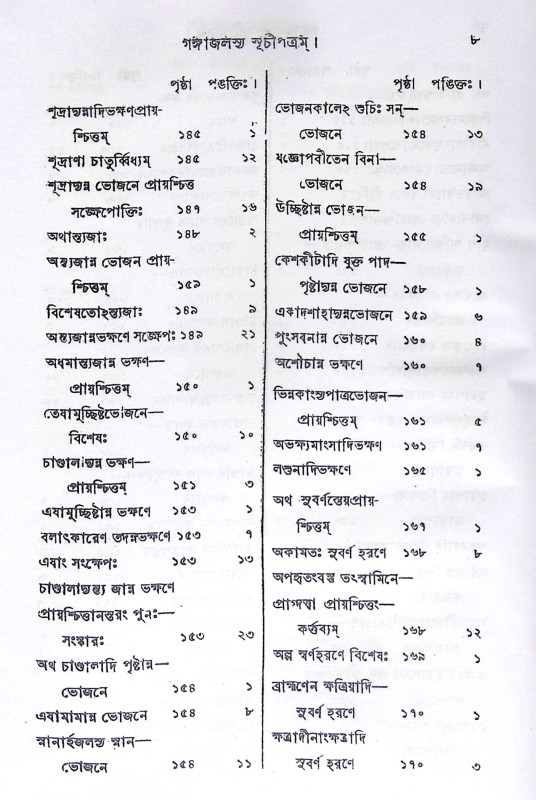 গঙ্গাজলস্য সূচীপত্রম্।	৮
পৃষ্ঠা পঙক্তিঃ।
শূদ্রান্নাদিভক্ষণপ্রায়-
শ্চিত্তম্ ১৪৫ ১
শূদ্রাণা চাতুর্ব্বিধ্যম্ ১৪৫ ১২
শূদ্রাদ্যন্ন ভোজনে প্রায়শ্চিত্ত
সঙ্ক্ষেপোক্তিঃ ১৪৭ ১৬
অথান্ত্যজাঃ ১৪৮ ২
অন্ত্যজান্ন ভোজন প্রায়-
শ্চিত্তম্ ১৫৯ ১
বিশেষতোহন্ত্যজাঃ ১৪৯ ৯
অন্ত্যজান্নভক্ষণে সঙ্ক্ষেপঃ ১৪৯ ২১
অধমান্ত্যজান্ন ভক্ষণ—
প্রায়শ্চিত্তম্ ১৫০ ১
তেষামুচ্ছিষ্টভোজনে—
বিশেষঃ ১৫০ ১০
চাণ্ডালান্নন্ন ভক্ষণ—
প্রায়শ্চিত্তম্ ১৫১ ৩
এষামুচ্ছিষ্টান্ন ভক্ষণে ১৫৩ ১
বলাৎকারেণ তদন্নভক্ষণে ১৫৩ ৭
এষাং সংক্ষেপঃ ১৫৩ ১৩
চাণ্ডালান্ত্যন্ত্য জান্ন ভক্ষণে
প্রায়শ্চিত্তানন্তরং পুনঃ—
সংস্কারঃ ১৫৩ ২৩
অথ চাণ্ডালাদি পৃষ্টান্ন—
ভোজনে ১৫৪ ১
এষামামান্ন ভোজনে ১৫৪ ৮
স্নানার্হজলস্য স্নান—
ভোজনে ১৫৪ ১১
পৃষ্ঠা পঙিক্তঃ।
ভোজনকালেহ শুচিঃ সন্—
ভোজনে ১৫৪ ১৩
যজ্ঞোপবীতেন বিনা—
ভোজনে ১৫৪ ১৯
উচ্ছিষ্টান্ন ভোজন—
প্রায়শ্চিত্তম্ ১৫৫ ১
কেশকীটাদি যুক্ত পাদ—
পৃষ্টাদ্যন্ন ভোজনে ১৫৮ ১
একাদশাহাদ্যন্নভোজনে ১৫৯ ৬
পুংসবনান্ন ভোজনে ১৬০ ৪
অশৌচান্ন ভক্ষণে ১৬০ ৭
ভিন্নকাংস্যপাত্রভোজন—
প্রায়শ্চিত্তম্ ১৬১ ৫
অভক্ষ্যমাংসাদিভক্ষণ ১৬১ ১
লশুনাদিভক্ষণে ১৬৫ ১
অথ সুবর্ণস্তেয়প্রায়-
শ্চিত্তম্ ১৬৭ ১
অকামতঃ সুবর্ণ হরণে ১৬৮ ৮
অপহৃতবস্তু তৎস্বামিনে—
প্রাগ্দত্ত্বা প্রায়শ্চিত্তং—
কর্ত্তব্যম্ ১৬৮ ১২
অল্প স্বর্ণহরণে বিশেষঃ ১৬৯ ১
ব্রাহ্মণেন ক্ষত্রিয়াদি—
সুবর্ণ হরণে ১৭০ ১
ক্ষত্রাদীনাংক্ষত্রাদি
সুবর্ণ হরণে ১৭০ ৩